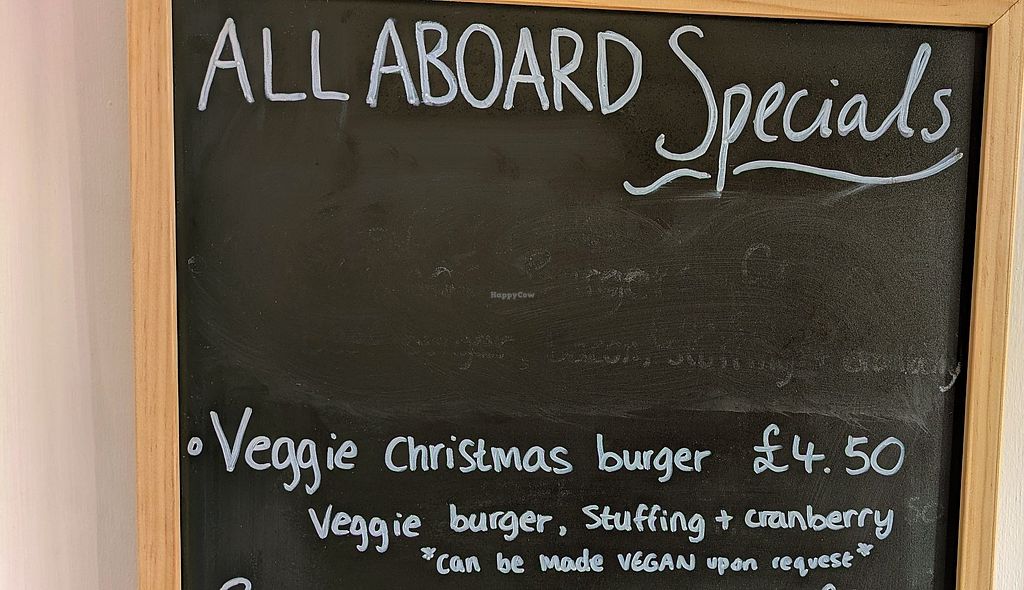 ALL ABOARD Specials
HappyCow
bacon, stuffing + cranberry
• Veggie Christmas burger £4.50
Veggie burger, stuffing + cranberry
*can be made VEGAN upon request*